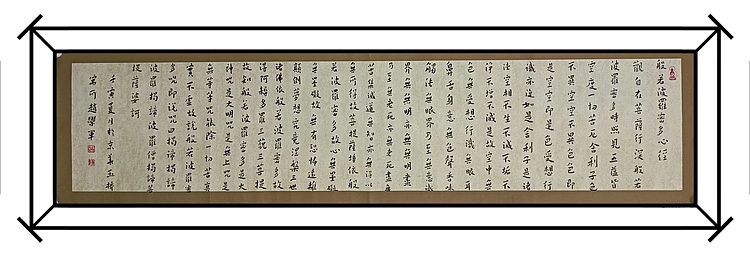 般若波羅蜜多心经
觀自在菩薩行深般若
波羅蜜多時照見五蘊皆
空度一切苦厄舍利子色
不異空空不異色色即
是空空即是色受想行
識亦復如是舍利子是諸
法空相不生不滅不垢不
净不增不減是故空中無
色無受想行識無眼耳
鼻舌身意無色聲香味
觸法無眼界乃至無意識
界無無明亦無無明盡
乃至無老死亦無老死盡無
苦集滅道無智亦無得以
無所得故菩提薩埵依般
若波羅蜜多故心無罣礙
無罣礙故無有恐怖遠離
顛倒夢想究竟涅槃三世
諸佛依般若波羅蜜多故
得阿耨多羅三藐三菩提
故知般若波羅蜜多是大
神咒是大明咒是無上咒是
無等等咒能除一切苦真
實不虛故說般若波羅蜜
多咒即說咒曰揭諦揭諦
波羅揭諦波羅僧揭諦菩
提薩婆訶
壬寅夏月於京華
趙學軍